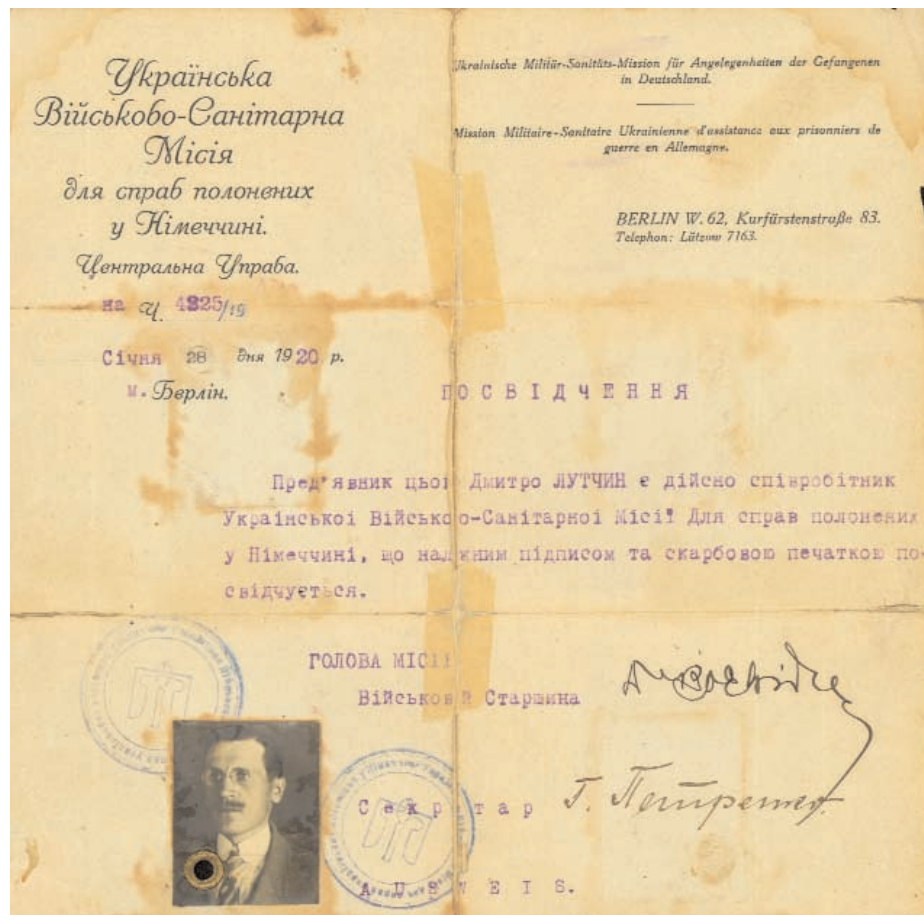 Українська
Військово-Санітарна
Місія
для справ полонених
у Німеччині.
Центральна Управа.
на Ч. 4325/19
Січня 28 дня 1920 р.
м. Берлін.
Ukrainische Militär-Sanitäts-Mission für Angelegenheiten der Gefangenen
in Deutschland.
Mission Militaire-Sanitaire Ukrainienne d'assistance aux prisonniers de
guerre en Allemagne.
BERLIN W. 62, Kurfürstenstraße 83.
Telephon: Lützow 7163.
ПОСВІДЧЕННЯ
Пред'явник цього Дмитро ЛУТЧИН є дійсно співробітник
Української Військово-Санітарної Місії Для справ полонених
у Німеччині, що належним підписом та скарбовою печаткою по-
свідчується.
ГОЛОВА МІСІЇ
Військовий Старшина
Секретар Г. Петренко
AUSWEIS.